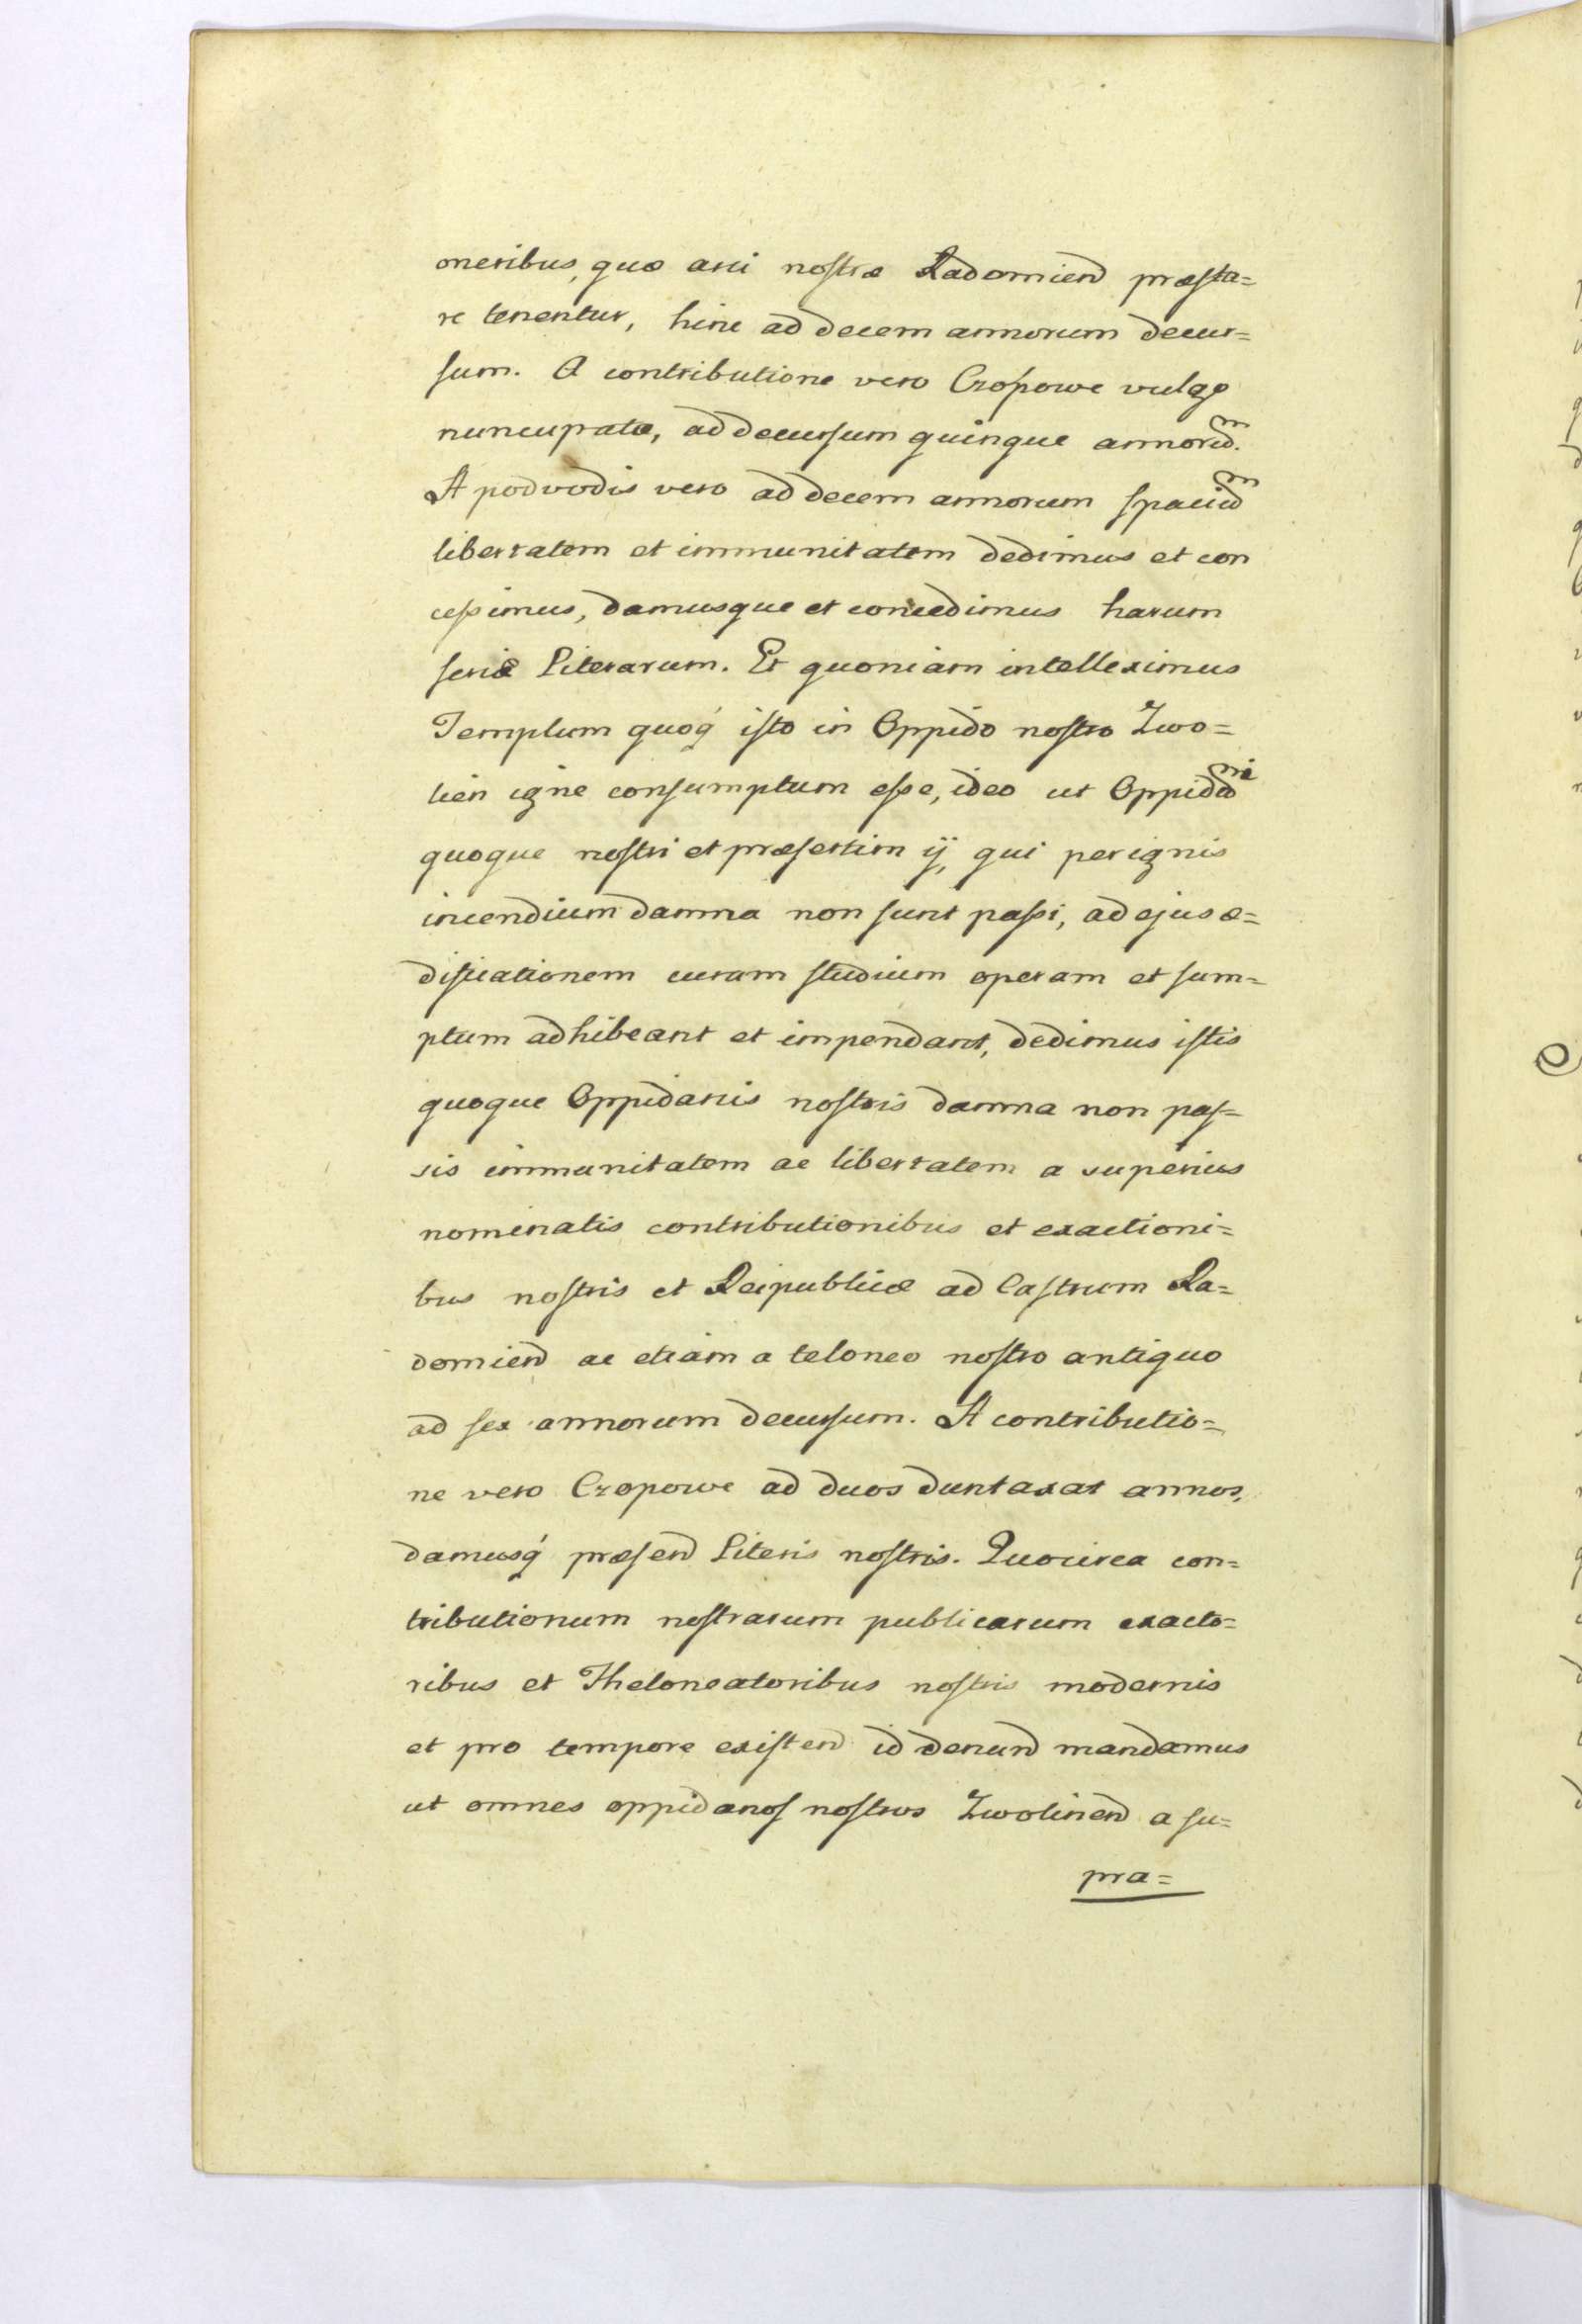 oneribus, quæ arci nostræ Radomien̄ præsta=
re tenentur, hinc ad decem annorum decur=
sum. A contributione vero Czopowe vulgo
nuncupata, ad decursum quinque annorum.
A podvodis vero ad decem annorum spacium
libertatem et immunitatem dedimus et con
cessimus, damusque et concedimus harum
serie Literarum. Et quoniam intelleximus
Templum quoq́ isto in Oppido nostro Zwo=
lien igne consumptum esse, ideo ut Oppidani
quoque nostri et præsertim ij, qui per ignis
incendium damna non sunt passi, ad ejus æ=
dificationem curam studium operam et sum=
ptum adhibeant et impendant, dedimus istis
quoque Oppidanis nostris damna non pas=
sis immunitatem ac libertatem a superius
nominatis contributionibus et exactioni=
bus nostris et Reipublicæ ad Castrum Ra=
domien̄ ac etiam a teloneo nostro antiquo
ad sex annorum decursum. A contributio=
ne vero Czopowe ad duos duntaxat annos,
damusq́ præsen̄ Literis nostris. Quocirca con=
tributionum nostrarum publicarum exacto=
ribus et Theloneatoribus nostris modernis
et pro tempore existen̄ id denun̄ mandamus
ut omnes oppidanos nostros Zwolinen̄ a su=
pra=